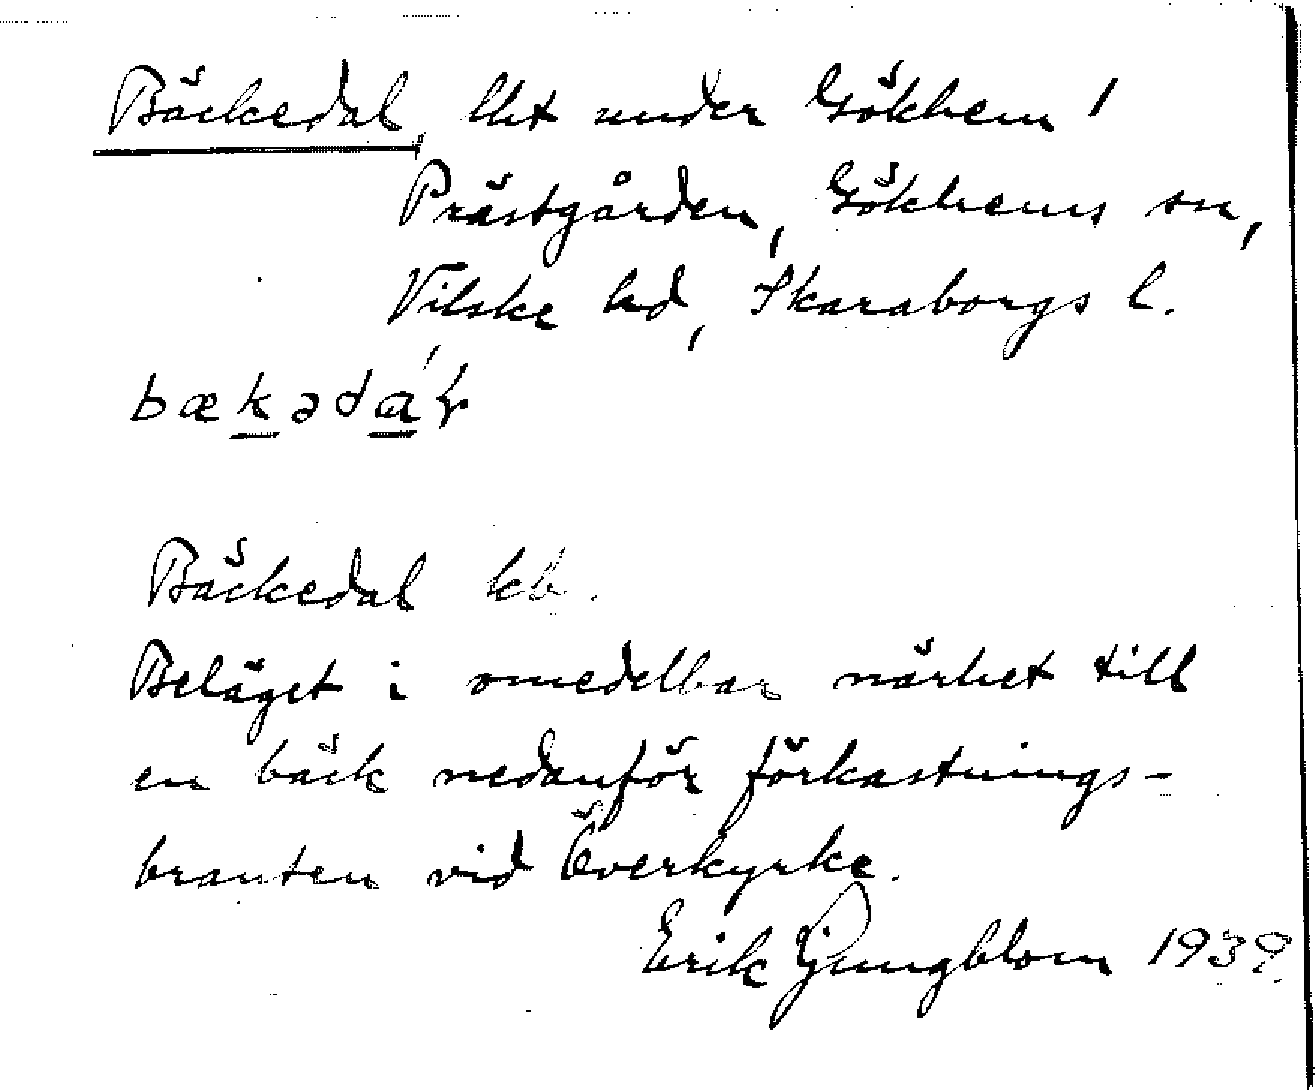 Bäckedal, lht under Gökhem 1
Prästgården, Gökhems sn,
Vilske hd, Skaraborgs l.
bækədáɽ
Bäckedal kb.
Beläget i omedelbar närhet till
en bäck nedanför förkastnings-
branten vid Överkyrke.
Erik Ljungblom 1939.